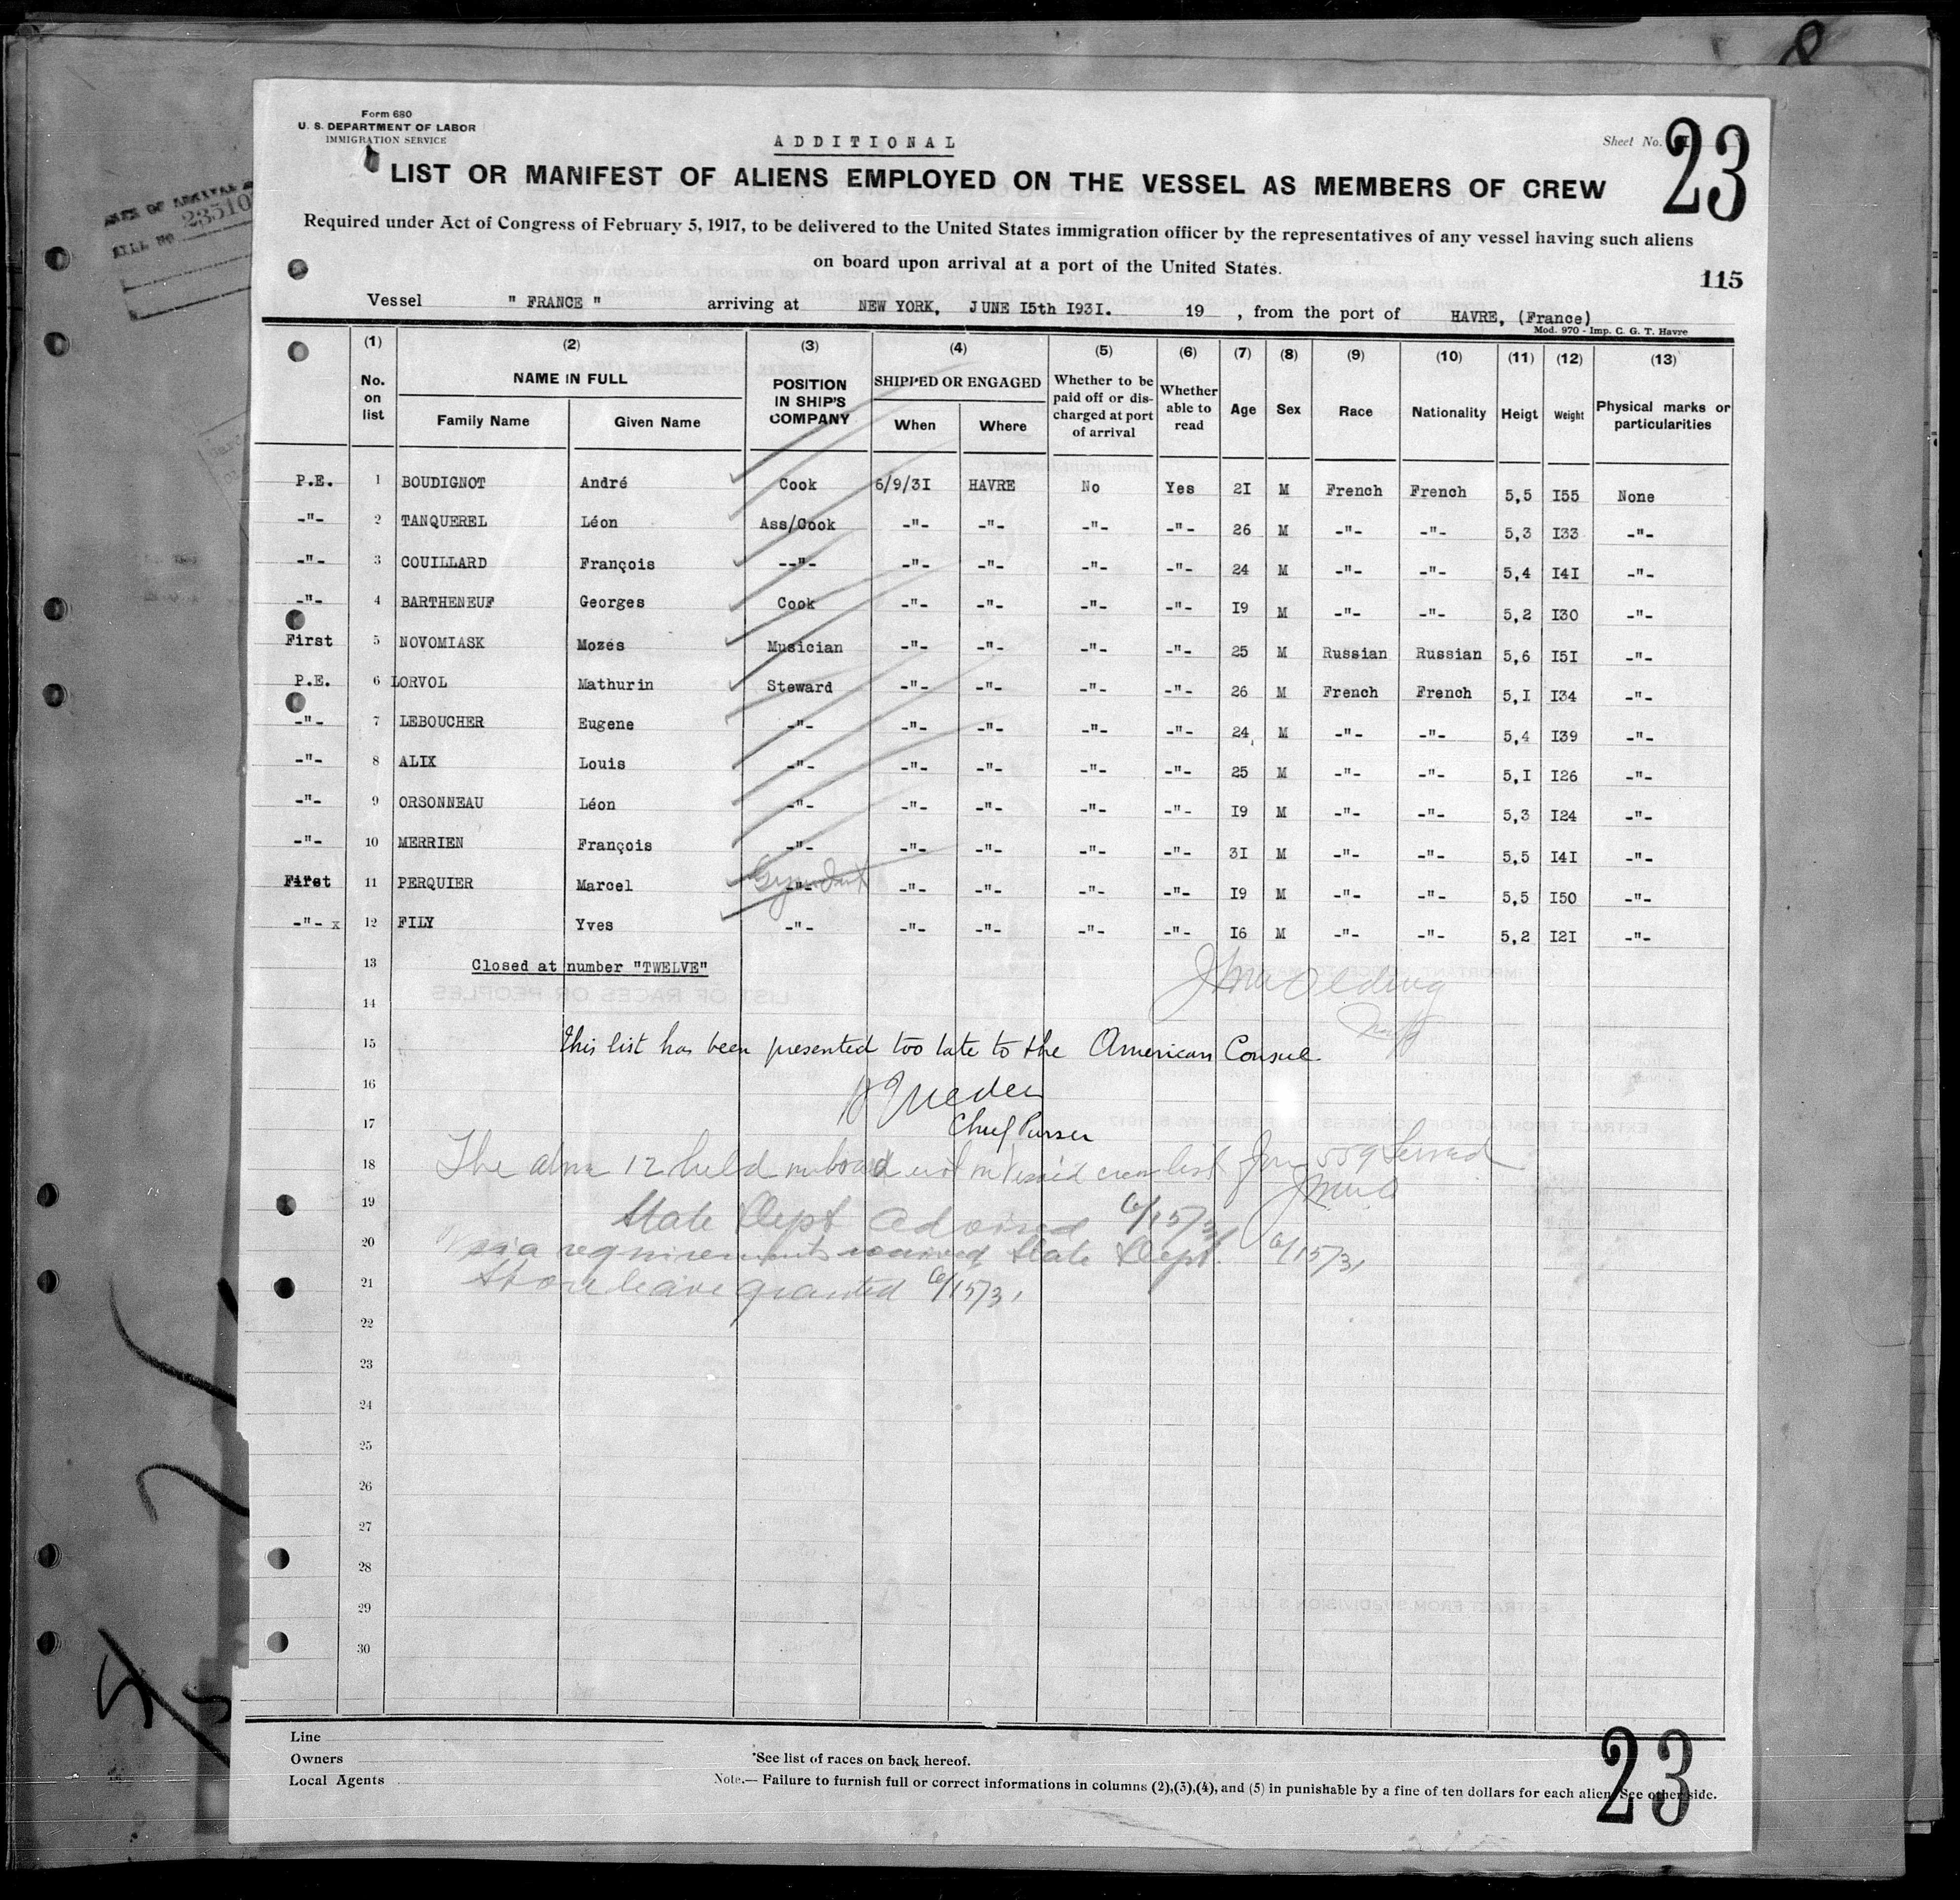 8
Form 680
U. S. DEPARTMENT OF LABOR
IMMIGRATION SERVICE
ADDITIONAL
Sheet No.
23
LIST OR MANIFEST OF ALIENS EMPLOYED ON THE VESSEL AS MEMBERS OF CREW
Required under Act of Congress of February 5, 1917, to be delivered to the United States immigration officer by the representatives of any vessel having such aliens
on board upon arrival at a port of the United States.
115
Vessel " FRANCE " arriving at NEW YORK, JUNE I5th I93I. 19 , from the port of HAVRE, (France)
Mod. 970 - Imp. C. G. T. Havre
(1) (2) (3) (4) (5) (6) (7) (8) (9) (10) (11) (12) (13)
No. on list NAME IN FULL Family Name Given Name POSITION IN SHIP'S COMPANY SHIPPED OR ENGAGED When Where Whether to be paid off or discharged at port of arrival Whether able to read Age Sex Race Nationality Heigt Weight Physical marks or particularities
P.E. 1 BOUDIGNOT André Cook 6/9/3I HAVRE No Yes 2I M French French 5,5 I55 None
-"- 2 TANQUEREL Léon Ass/Cook -"- -"- -"- -"- 26 M -"- -"- 5,3 I33 -"-
-"- 3 COUILLARD François --"- -"- -"- -"- -"- 24 M -"- -"- 5,4 I4I -"-
-"- 4 BARTHENEUF Georges Cook -"- -"- -"- -"- I9 M -"- -"- 5,2 I30 -"-
First 5 NOVOMIASK Mozes Musician -"- -"- -"- -"- 25 M Russian Russian 5,6 I5I -"-
P.E. 6 LORVOL Mathurin Steward -"- -"- -"- -"- 26 M French French 5,I I34 -"-
-"- 7 LEBOUCHER Eugene -"- -"- -"- -"- -"- 24 M -"- -"- 5,4 I39 -"-
-"- 8 ALIX Louis -"- -"- -"- -"- -"- 25 M -"- -"- 5,I I26 -"-
-"- 9 ORSONNEAU Léon -"- -"- -"- -"- -"- I9 M -"- -"- 5,3 I24 -"-
-"- 10 MERRIEN François -"- -"- -"- -"- -"- 3I M -"- -"- 5,5 I4I -"-
First 11 PERQUIER Marcel -"- -"- -"- -"- -"- I9 M -"- -"- 5,5 I50 -"-
-"- x 12 FILY Yves -"- -"- -"- -"- -"- I6 M -"- -"- 5,2 I2I -"-
13 Closed at number "TWELVE"
14
15 This list has been presented too late to the American Consul
16
17 Chief Purser
18 The above 12 held on board not on visaed crew list Form 559 Served
19 State Dept advised 6/15/31
20 Visa requirements waived State Dept. 6/15/31
21 Shore leave granted 6/15/31
22
23
24
25
26
27
28
29
30
Line
Owners
Local Agents
*See list of races on back hereof.
Note.— Failure to furnish full or correct informations in columns (2),(3),(4), and (5) in punishable by a fine of ten dollars for each alien. See other side.
23